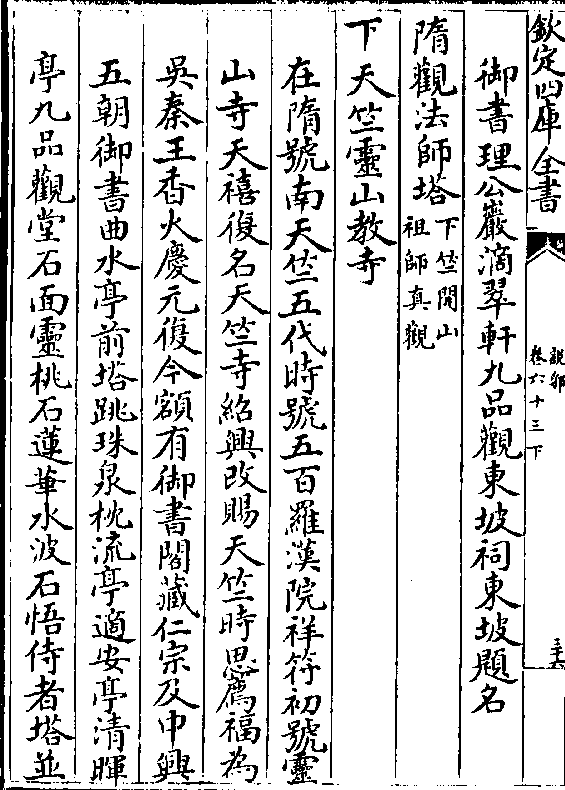 欽定四庫全書
說郛
卷六十三下
三十六
御書理公巖滴翠軒九品觀東坡祠東坡題名
隋觀法師塔下竺開山
祖師真觀
下天竺靈山教寺
在隋號南天竺五代時號五百羅漢院祥符初號靈
山寺天禧復名天竺寺紹興改賜天竺時思薦福為
吳秦王香火慶元復今額有御書閣藏仁宗及中興
五朝御書曲水亭前塔跳珠泉枕流亭適安亭清暉
亭九品觀堂石面靈桃石蓮華水波石悟侍者塔並